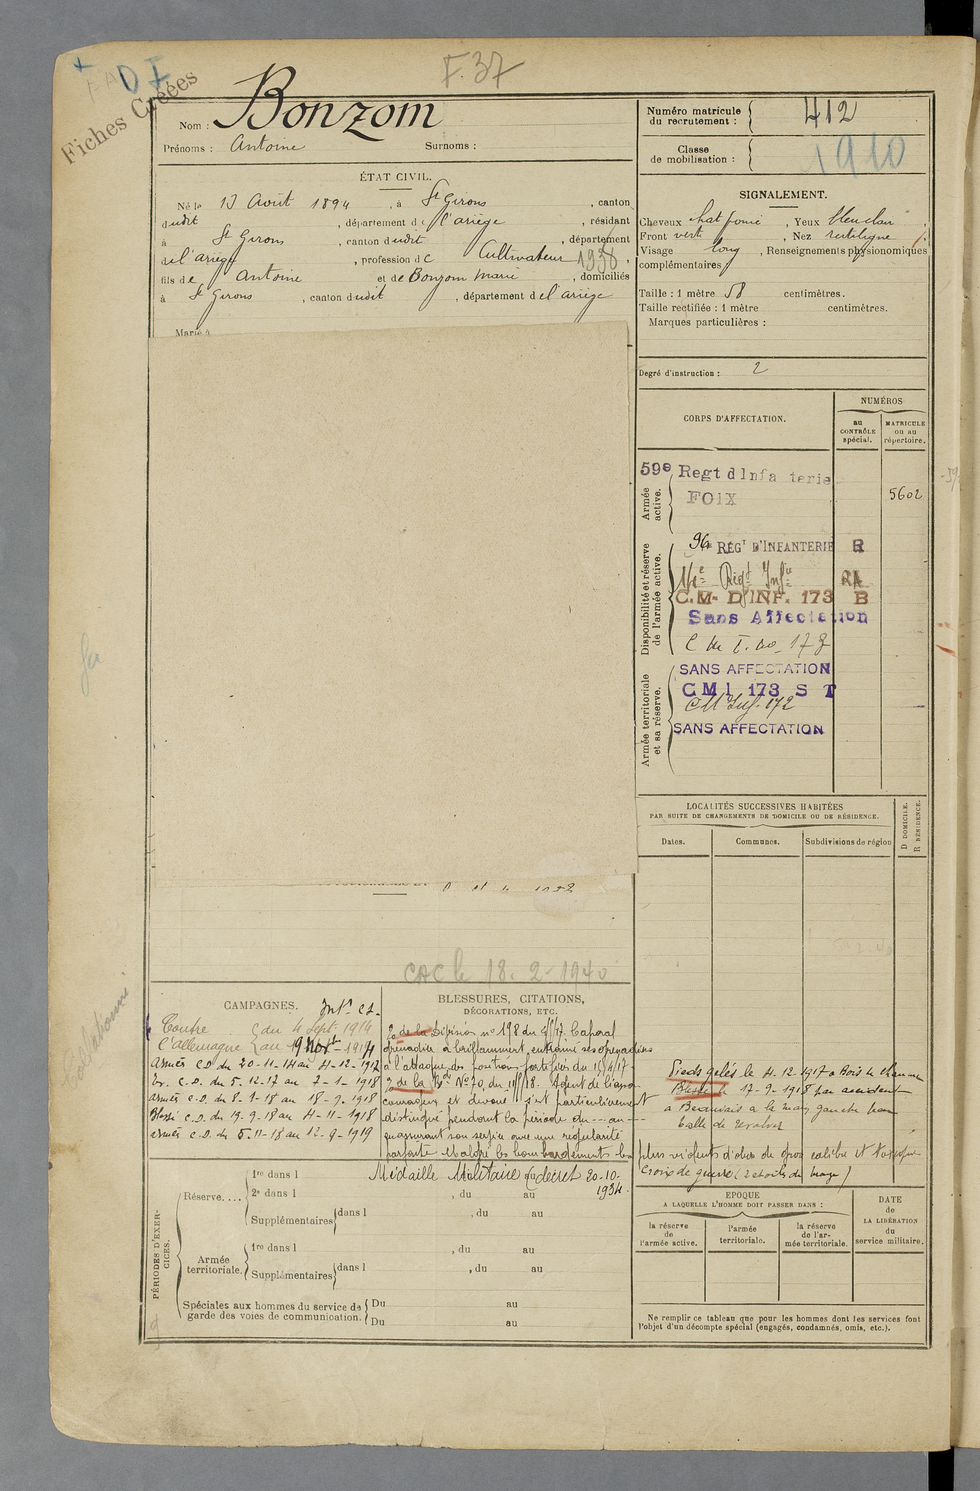 F. 37
Fiches Créées
Nom : Bonzom
Prénoms : Antoine Surnoms :
Numéro matricule du recrutement : 412
Classe de mobilisation : 1910
ÉTAT CIVIL.
Né le 13 Août 1894, à St Girons, canton
dudit, département de l'ariège, résidant
à St Girons, canton dudit, département
de l'ariège, profession de Cultivateur 1938,
fils de Antoine et de Bonzom Marie, domiciliés
à St Girons, canton dudit, département de l'ariège
Marié à
SIGNALEMENT.
Cheveux chat foncé, Yeux bleu clair
Front vert, Nez rectiligne
Visage long, Renseignements physionomiques
complémentaires
Taille : 1 mètre 58 centimètres.
Taille rectifiée : 1 mètre centimètres.
Marques particulières :
Degré d'instruction : 2
CORPS D'AFFECTATION.
NUMÉROS
au CONTRÔLE spécial.
MATRICULE ou au répertoire.
Armée active.
59e Regt d'Infa terie
FOIX
5602
Disponibilité et réserve de l'armée active.
96e RÉGt D'INFANTERIE R
Regt Infie
C.M. D'INF. 173 B
Sans Affectation
C M I. 173
Armée territoriale et sa réserve.
SANS AFFECTATION
C M I 173 S T
CM Inf. 172
SANS AFFECTATION
LOCALITÉS SUCCESSIVES HABITÉES
PAR SUITE DE CHANGEMENTS DE DOMICILE OU DE RÉSIDENCE.
Dates. Communes. Subdivisions de région
D DOMICILE.
R RÉSIDENCE.
CAC le 18. 2-1940
Collationné
CAMPAGNES.
Contre du 4 Sept 1914
l'Allemagne au 19 Nov - 1914
Armées C.D. du 20-11-14 au 4-12-1917
Ev. C.D. du 5-12-17 au 7-1-1918
Armées C.D. du 8-1-18 au 18-9-1918
Blessé C.D. du 19-9-18 au 4-11-1918
Armées C.D. du 5-11-18 au 12-9-1919
BLESSURES, CITATIONS,
DÉCORATIONS, ETC.
de la Division no 198 du Caporal
grenadier a brillamment entraîné ses grenadiers
à l'attaque des positions fortifiées du
de la No 70, du Agent de liaison
courageux et dévoué s'est particulièrement
distingué pendant la période du au
en assurant son service avec une régularité
parfaite Malgré les bombardements les
plus violents d'obus de gros calibre et toxiques
Croix de guerre (2 étoiles de bronze)
Médaille Militaire décret 20-10-
1934.
Pieds gelés le 4.12.1917 a Bois le Chaume
Blessé le 17-9-1918 par accident
a Beauvais a la main gauche par
balle de revolver
PÉRIODES D'EXERCICES.
Réserve....
1re dans l
2e dans l , du au
Supplémentaires dans l , du au
Armée territoriale.
1re dans l , du au
Supplémentaires dans l , du au
Spéciales aux hommes du service de garde des voies de communication.
Du au
Du au
ÉPOQUE
A LAQUELLE L'HOMME DOIT PASSER DANS :
la réserve de l'armée active.
l'armée territoriale.
la réserve de l'armée territoriale.
DATE de LA LIBÉRATION du service militaire.
Ne remplir ce tableau que pour les hommes dont les services font
l'objet d'un décompte spécial (engagés, condamnés, omis, etc.).